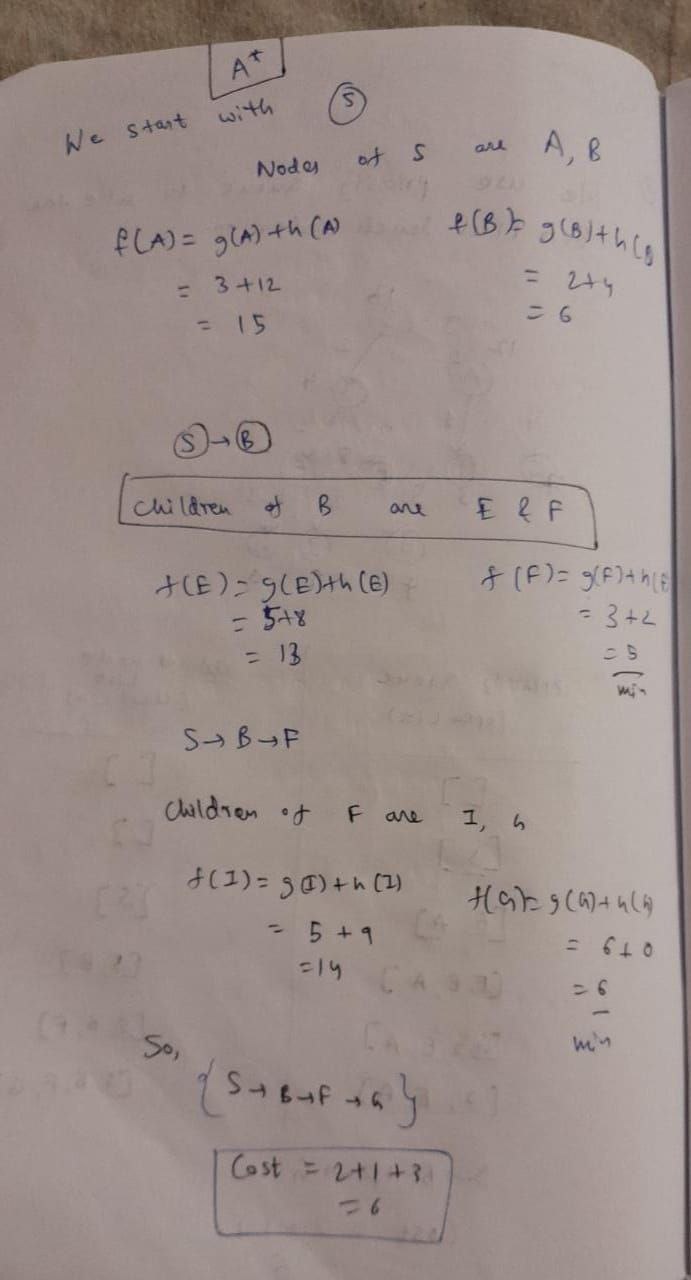 A*
We start with S
Nodes of S are A, B
f(A) = g(A) + h(A) f(B) = g(B) + h(B
= 3 + 12 = 2+4
= 15 = 6
S → B
Children of B are E & F
f(E) = g(E)+h(E) f(F) = g(F)+h(F
= 5+8 = 3+2
= 13 = 5
min
S → B → F
Children of F are I, G
f(I) = g(I) + h(I) f(G) = g(G) + h(G)
= 5 + 9 = 6+0
= 14 = 6
min
So,
{ S → B → F → G }
Cost = 2+1+3
= 6